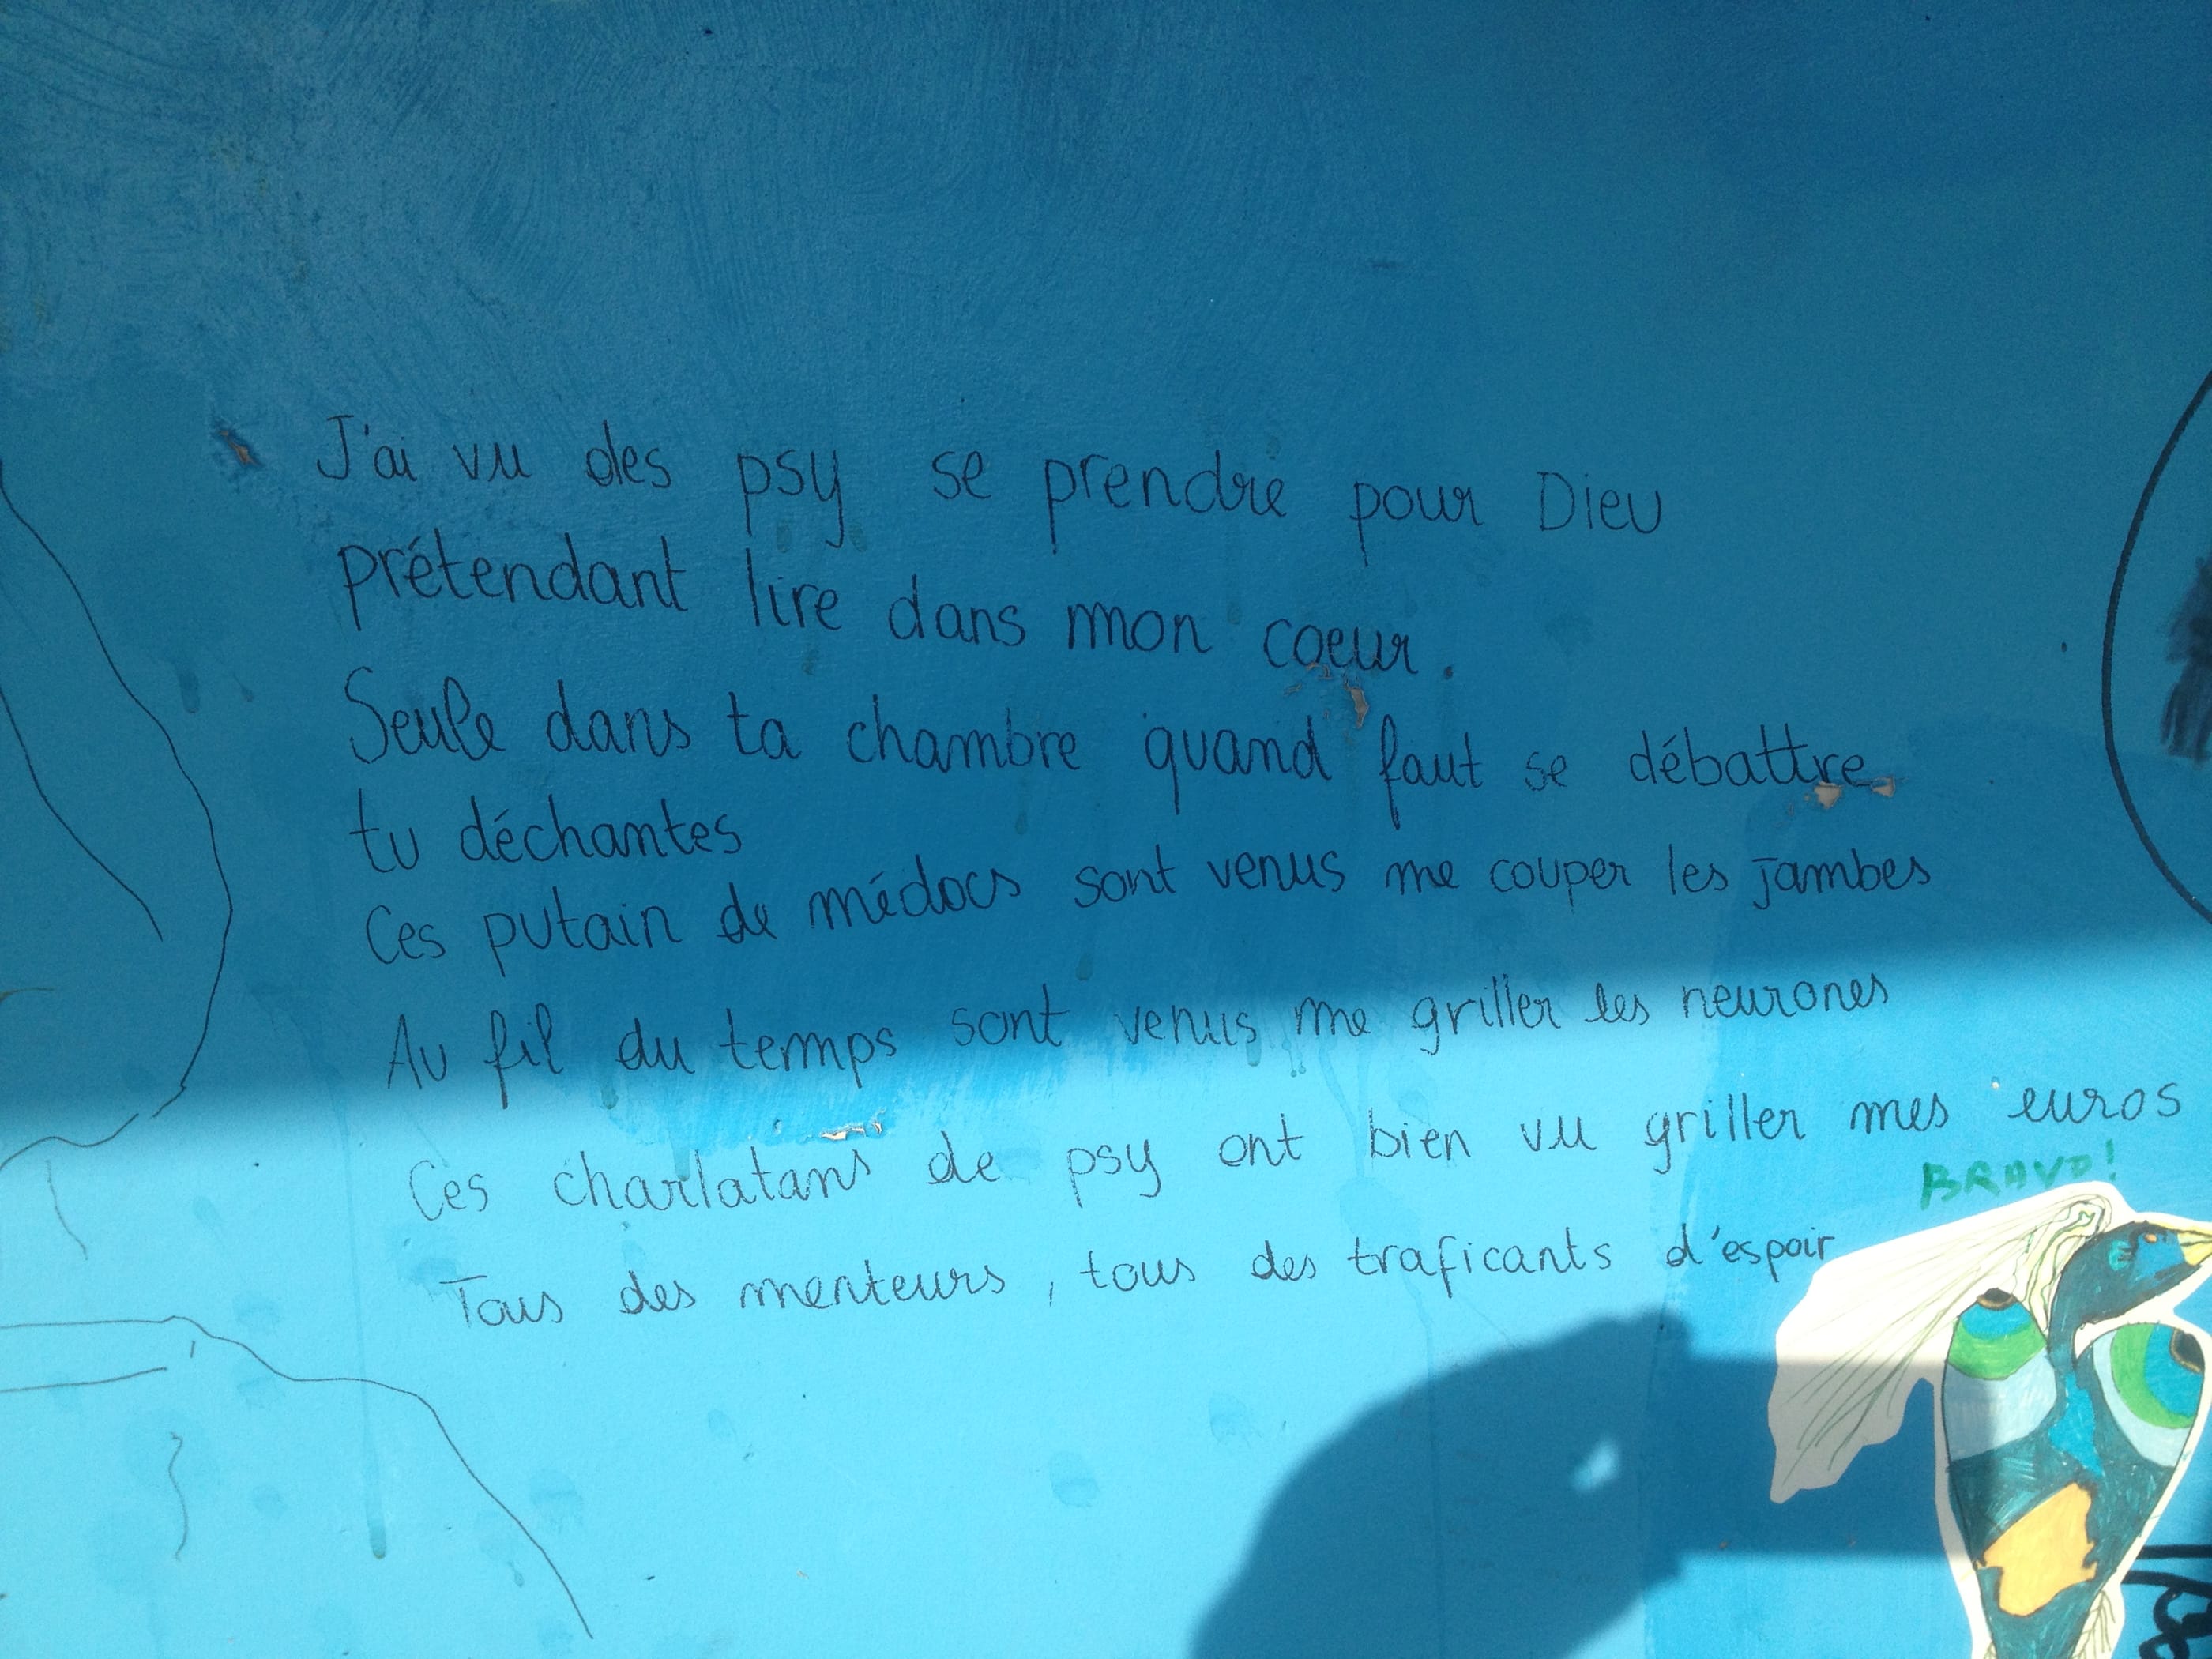 J'ai vu des psy se prendre pour Dieu
prétendant lire dans mon coeur.
Seule dans ta chambre quand faut se débattre
tu déchantes
Ces putain de médocs sont venus me couper les jambes
Au fil du temps sont venus me griller les neurones
Ces charlatans de psy ont bien vu griller mes euros
BRAVO!
Tous des menteurs, tous des traficants d'espoir